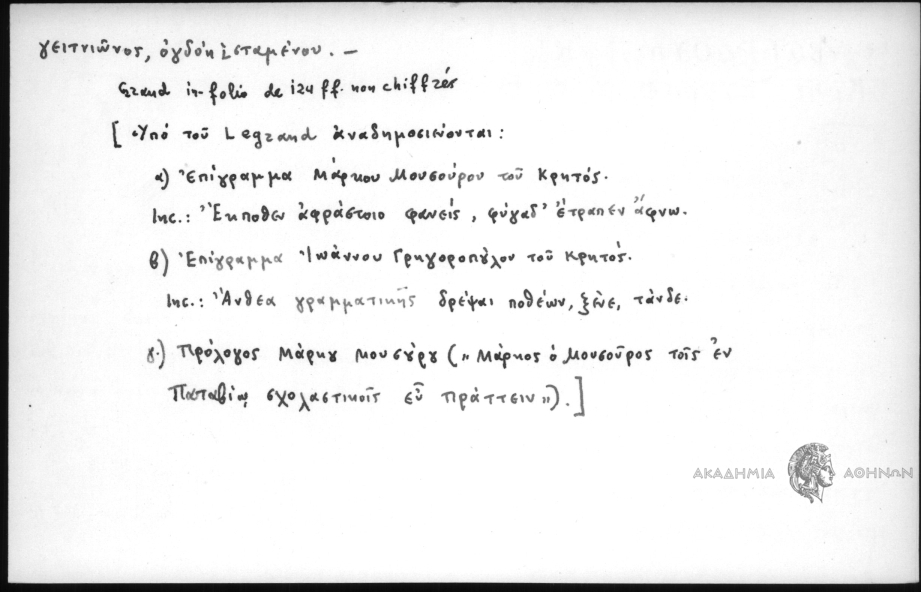 γειτνιῶνος, ὀγδόῃ ἱσταμένου. —
Grand in-folio de 124 ff. non chiffrés
[Ὑπὸ τοῦ Legrand ἀναδημοσιεύονται:
α) Ἐπίγραμμα Μάρκου Μουσούρου τοῦ Κρητός.
Inc.: Ἔκποθεν ἀφράστοιο φανείς, φύγαδ' ἔτραπεν ἄφνω.
β) Ἐπίγραμμα Ἰωάννου Γρηγοροπȣ́λου τοῦ Κρητός.
Inc.: Ἄνθεα γραμματικῆς δρέψαι ποθέων, ξένε, τάνδε.
γ.) Πρόλογος Μάρκȣ Μουσȣ́ρȣ („Μάρκος ὁ Μουσοῦρος τοῖς ἐν
Παταβίῳ σχολαστικοῖς εὖ πράττειν").]
ΑΚΑΔΗΜΙΑ ΑΘΗΝΩΝ